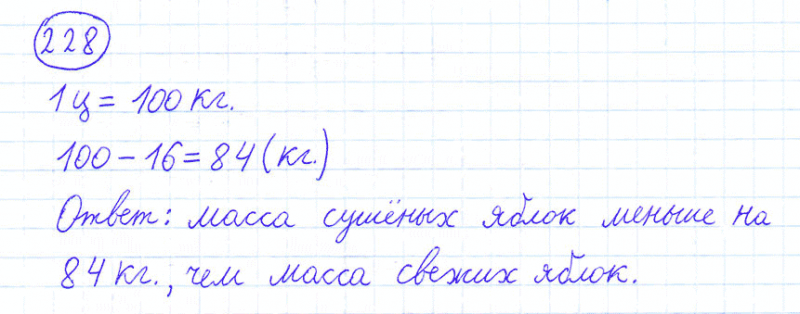 228
1ц = 100 кг.
100 - 16 = 84 (кг.)
Ответ: масса сушёных яблок меньше на
84 кг., чем масса свежих яблок.